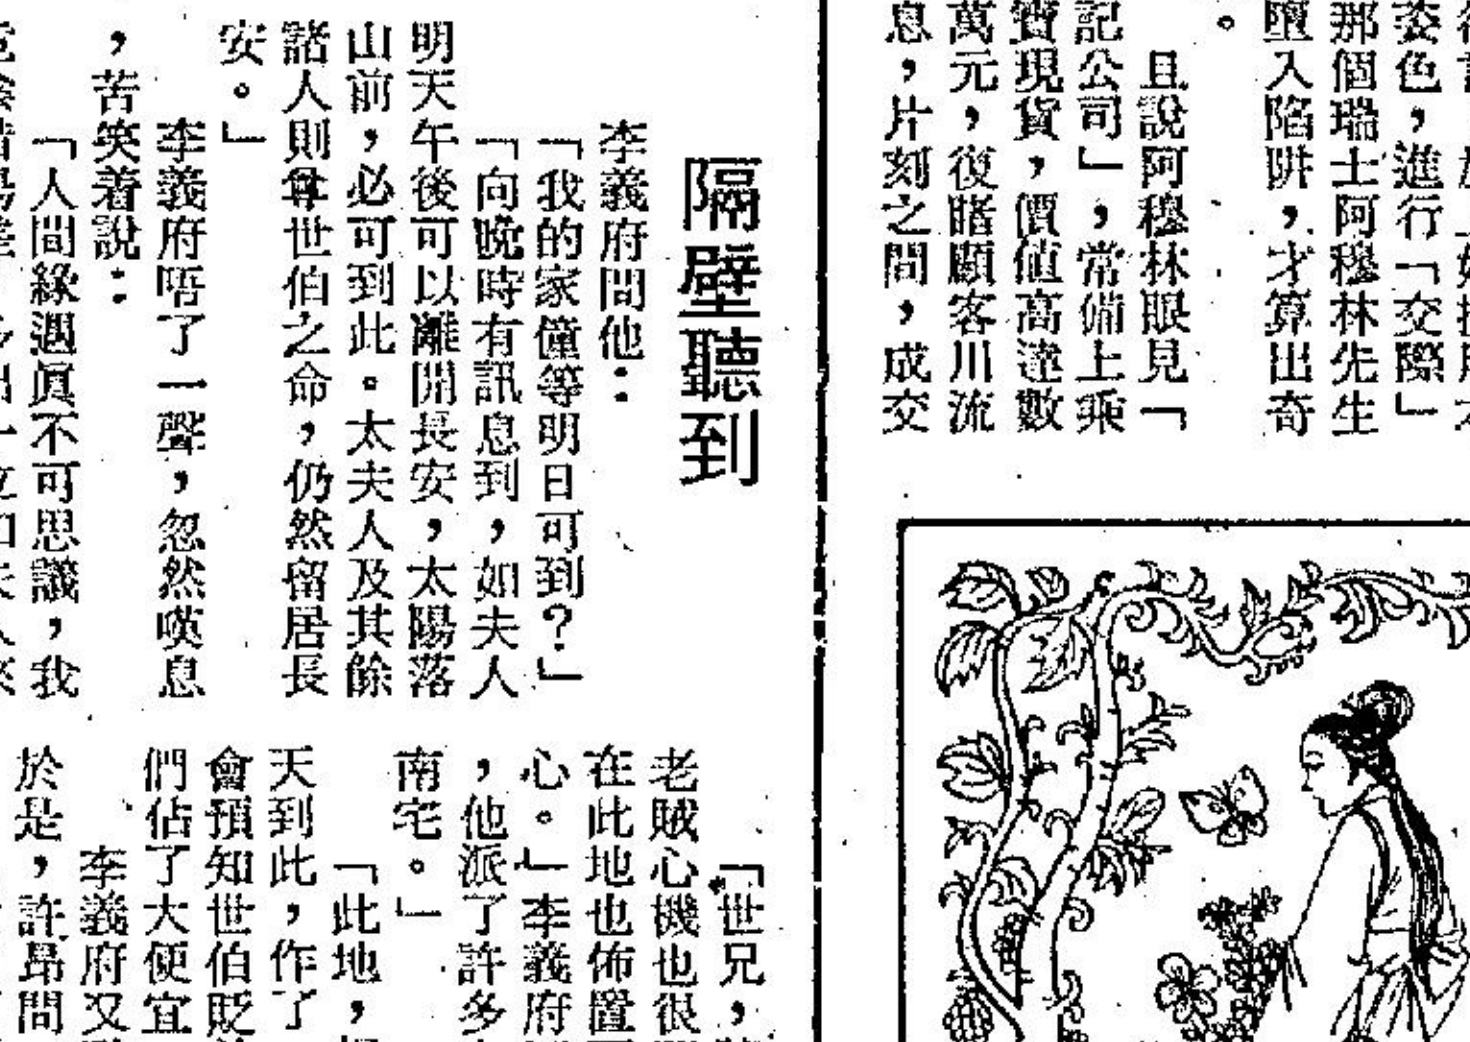 姿色，進行「交際」
那個瑞士阿穆林先生
墮入陷阱，才算出奇
。
且說阿穆林眼見「
記公司」，常備上乘
寶現貨，價值高達數
萬元，復睹顧客川流
息，片刻之間，成交
隔壁聽到
李義府問他：
「我的家僮等明日可到？」
「向晚時有訊息到，如夫人
明天午後可以離開長安，太陽落
山前，必可到此。太夫人及其餘
諸人則尊世伯之命，仍然留居長
安。」
李義府唔了一聲，忽然嘆息
，苦笑着說：
「人間緣遇眞不可思議，我
「世兄，
老賊心機也很
在此地也佈置
心。」李義府
，他派了許多
南宅。」
「此地，
天到此，作了
會預知世伯貶
們佔了大便宜
李義府又
於是，許昂問